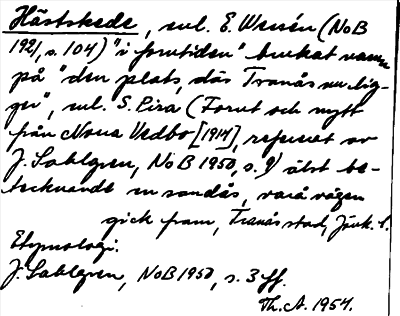 Hästskede, enl. E. Wessén (NoB
1921, s. 104) "i forntiden" brukat namn
på "den plats, där Tranås nu lig-
ger", enl. S. Pira (Fornt och nytt
från Norra Vedbo [1914], refererat av
J. Sahlgren, NoB 1950, s. 9) äldst be-
tecknande en sandås, varå vägen
gick fram, Tranås stad, Jönk. l.
Etymologi.
J. Sahlgren, NoB 1950, s. 3 ff.
Th. A. 1954.